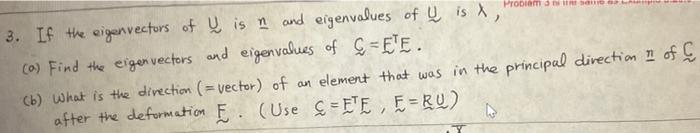 Problem 3 is the same as
3. If the eigenvectors of U is n and eigenvalues of U is λ,
(a) Find the eigenvectors and eigenvalues of C = FᵀF.
(b) What is the direction (= vector) of an element that was in the principal direction n of C
after the deformation F. (Use C = FᵀF, F = RU)